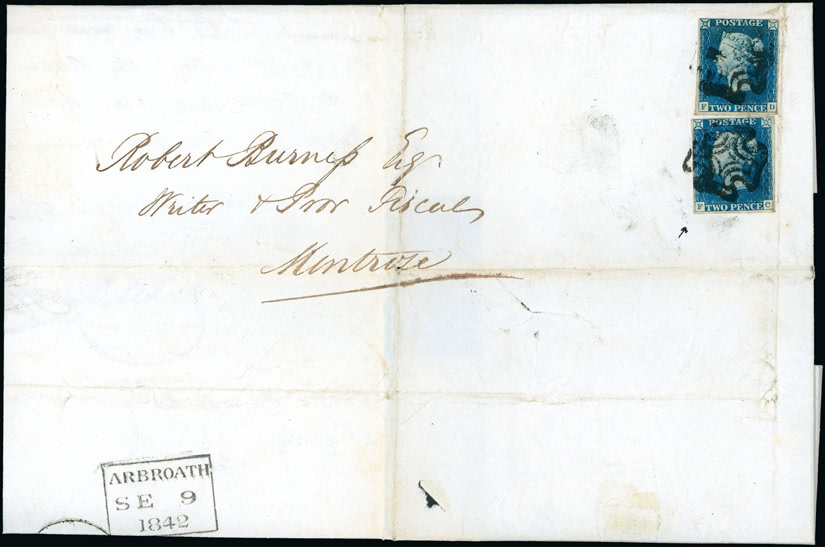 POSTAGE
F D
TWO PENCE
POSTAGE
F C
TWO PENCE
Robert Burness Esq.
Writer & Pror Fiscal
Montrose
ARBROATH
SE 9
1842